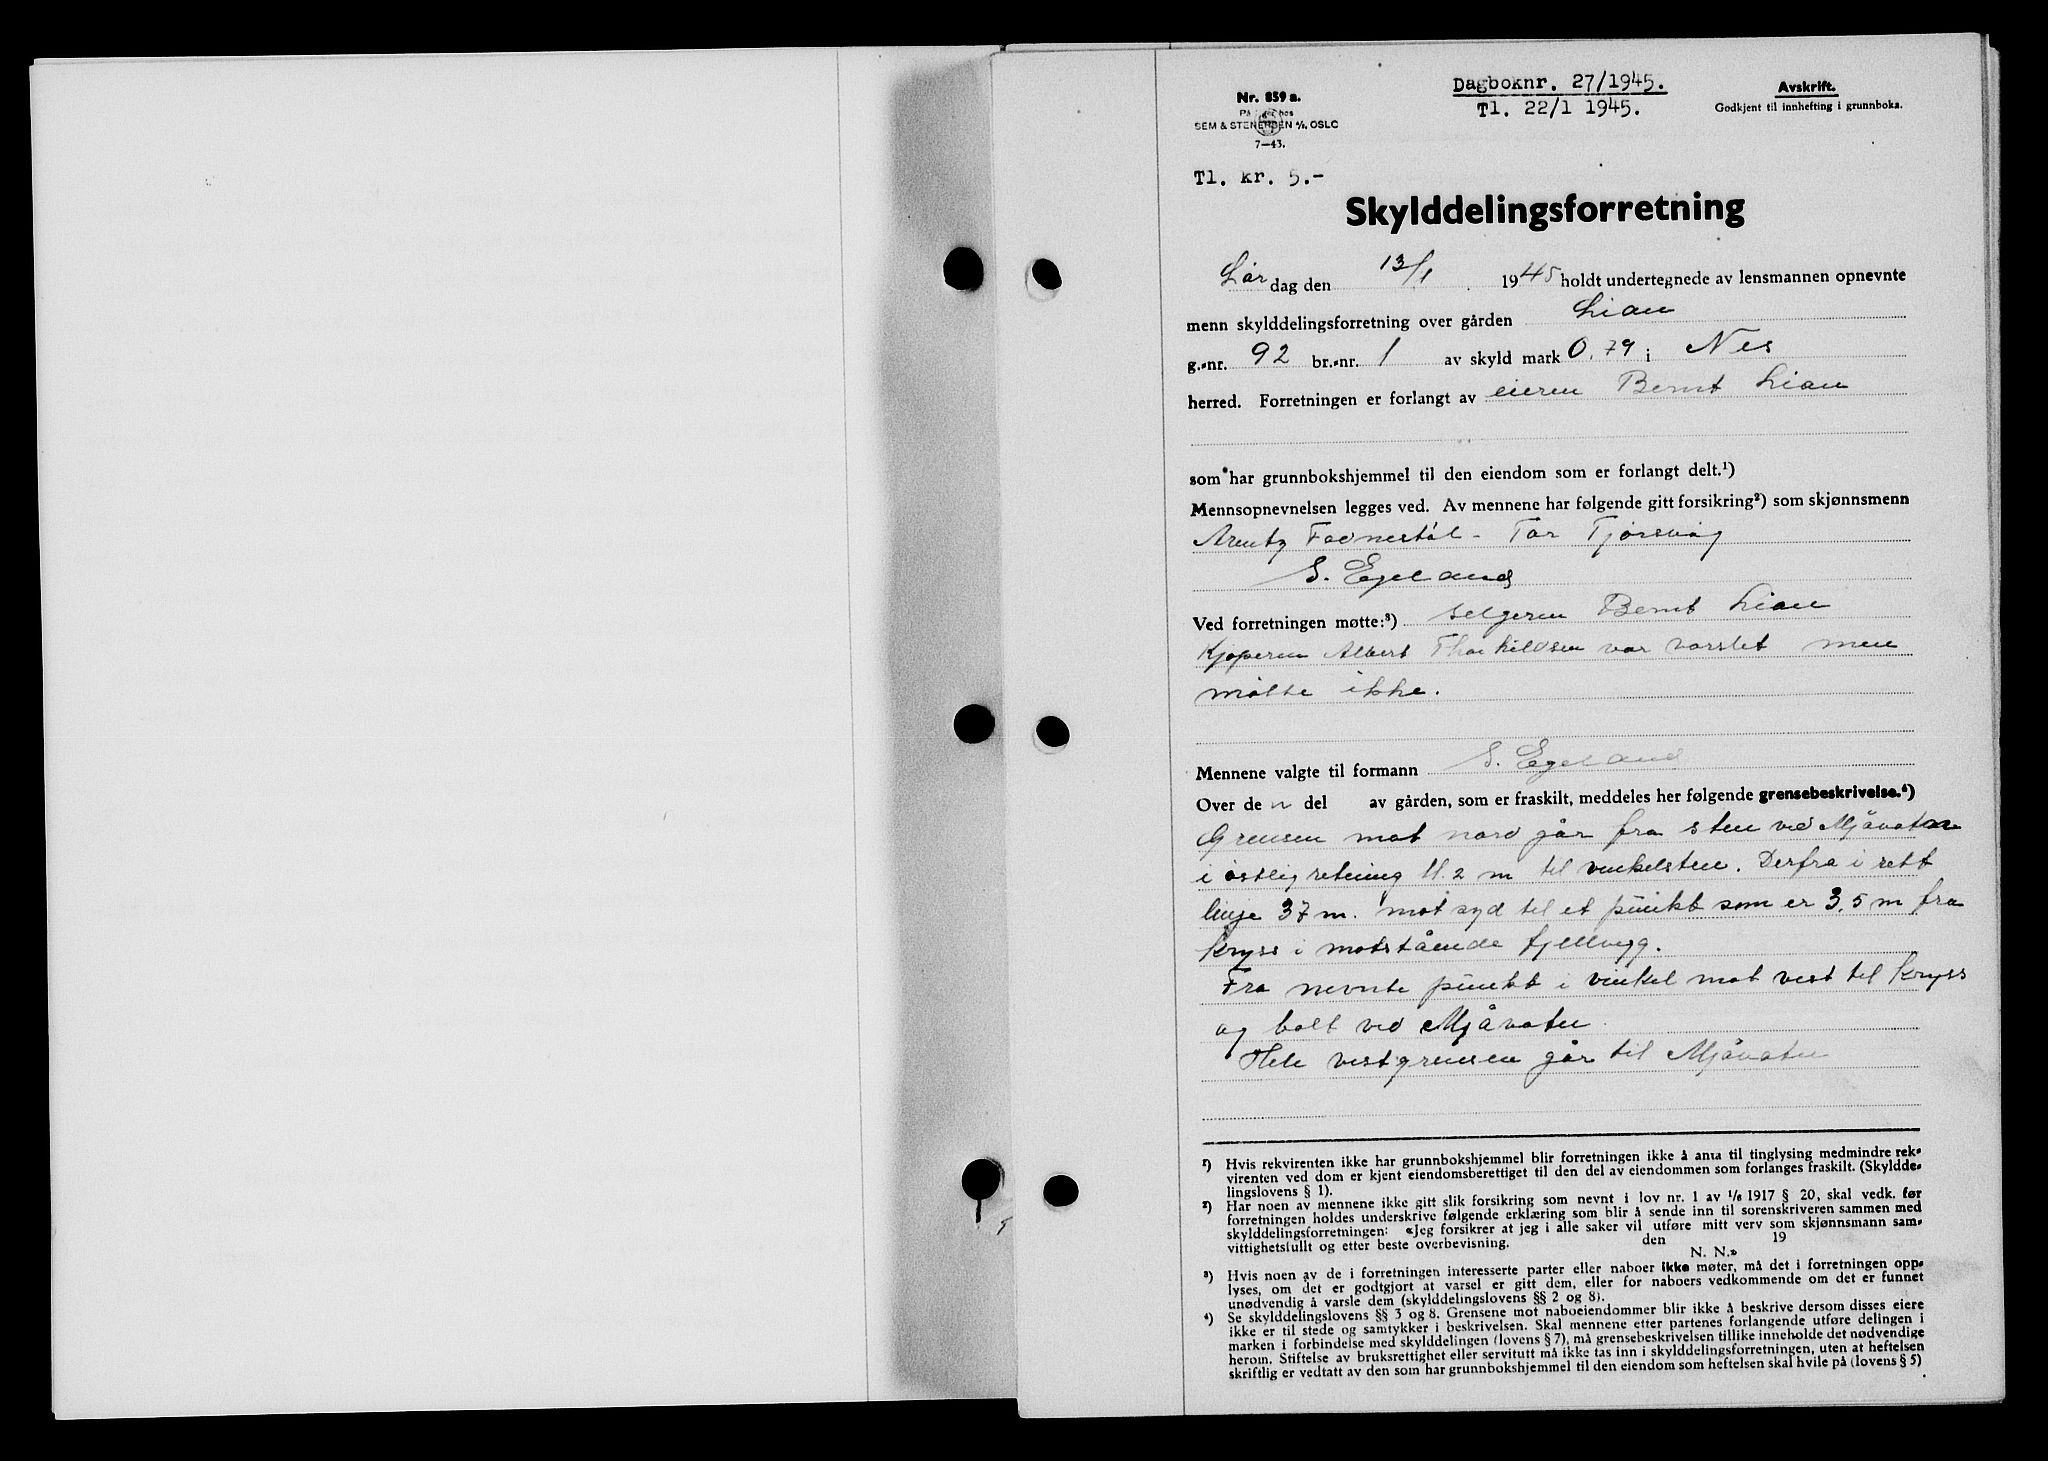 Dagboknr. 27/1945.
Tl. 22/1 1945.
Avskrift.
Godkjent til innhefting i grunnboka.
Nr. 859 a.
På lager hos
SEM & STENERSEN A/S, OSLO
7—43.
Tl. kr. 5.-
Skylddelingsforretning
Lør dag den 13/1 1945 holdt undertegnede av lensmannen opnevnte
menn skylddelingsforretning over gården Lian
g.-nr. 92 br.-nr. 1 av skyld mark 0,79 i Nes
herred. Forretningen er forlangt av eieren Bernt Lian
som har grunnbokshjemmel til den eiendom som er forlangt delt.¹)
Mennsopnevnelsen legges ved. Av mennene har følgende gitt forsikring²) som skjønnsmenn
Arentz Fednestøl - Tor Tjørsvåg
S. Egeland
Ved forretningen møtte:³) selgeren Bernt Lian
Kjøperen Albert Thorkildsen var varslet men
møtte ikke.
Mennene valgte til formann S. Egeland
Over den del av gården, som er fraskilt, meddeles her følgende grensebeskrivelse.⁴)
Grensen mot nord går fra sten ved Mjåvatn
i østlig retning 11.2 m til vinkelsten. Derfra i rett
linje 37 m. mot syd til et punkt som er 3,5 m fra
kryss i motstående fjellvegg.
Fra nevnte punkt i vinkel mot vest til kryss
og bolt ved Mjåvatn.
Hele vestgrensen går til Mjåvatn
¹) Hvis rekvirenten ikke har grunnbokshjemmel blir forretningen ikke å anta til tinglysing medmindre rek-
virenten ved dom er kjent eiendomsberettiget til den del av eiendommen som forlanges fraskilt. (Skyldde-
lingslovens § 1).
²) Har noen av mennene ikke gitt slik forsikring som nevnt i lov nr. 1 av 1/6 1917 § 20, skal vedk. før
forretningen holdes underskrive følgende erklæring som blir å sende inn til sorenskriveren sammen med
skylddelingsforretningen: «Jeg forsikrer at jeg i alle saker vil utføre mitt verv som skjønnsmann sam-
vittighetsfullt og etter beste overbevisning. den 19
N. N.»
³) Hvis noen av de i forretningen interesserte parter eller naboer ikke møter, må det i forretningen opp-
lyses, om det er godtgjort at varsel er gitt dem, eller for naboers vedkommende om det er funnet
unødvendig å varsle dem (skylddelingslovens §§ 2 og 8).
⁴) Se skylddelingslovens §§ 3 og 8. Grensene mot naboeiendommer blir ikke å beskrive dersom disses eiere
ikke er til stede og samtykker i beskrivelsen. Skal mennene etter partenes forlangende utføre delingen i
marken i forbindelse med skylddelingen (lovens § 7), må grensebeskrivelsen tillike inneholde det nødvendige
herom. Stiftelse av bruksrettighet eller servitutt må ikke tas inn i skylddelingsforretningen, uten at heftelsen
skriftlig er vedtatt av den som har grunnbokshjemmel til den eiendom som heftelsen skal hvile på (lovens § 5)